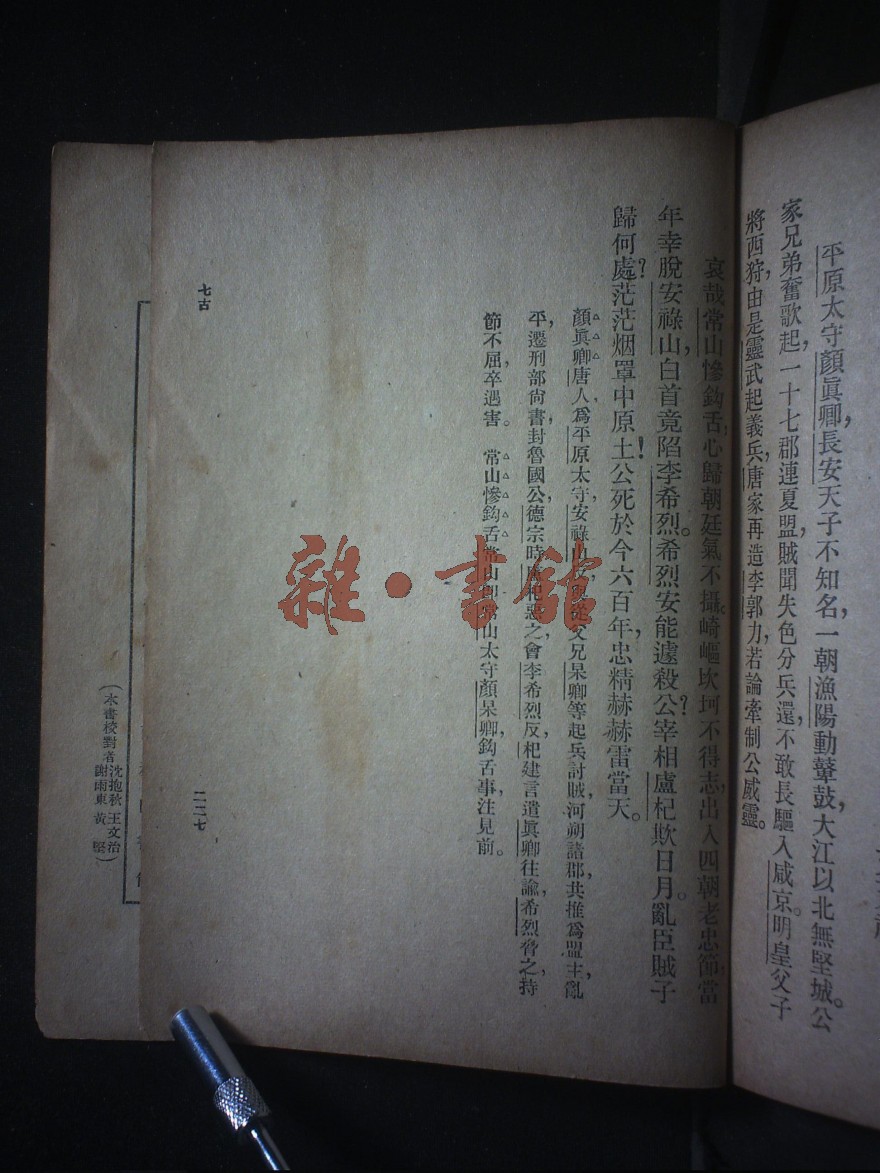 平原太守顏眞卿，長安天子不知名，一朝漁陽動鼙鼓，大江以北無堅城。公
家兄弟奮歌起，一十七郡連夏盟，賊聞失色分兵還，不敢長驅入咸京。明皇父子
將西狩，由是靈武起義兵，唐家再造李郭力，若論牽制公威靈。
哀哉常山慘鈎舌，心歸朝廷氣不攝，崎嶇坎坷不得志，出入四朝老忠節，當
年幸脫安祿山，白首竟陷李希烈。希烈安能遽殺公？宰相盧杞欺日月。亂臣賊子
歸何處？茫茫烟罩中原土！公死於今六百年，忠精赫赫雷當天。
顏眞卿，唐人，爲平原太守，安祿山反，與從父兄杲卿等起兵討賊，河朔諸郡，共推爲盟主，亂
平，遷刑部尙書，封魯國公，德宗時，盧杞惡之，會李希烈反，杞建言遣眞卿往諭，希烈脅之，持
節不屈，卒遇害。 常山慘鈎舌，常山，卽常山太守顏杲卿，鈎舌事，注見前。
七古
二二七
（本書校對者沈抱秋 王文治
謝雨東 黃 堅）
雜·書館